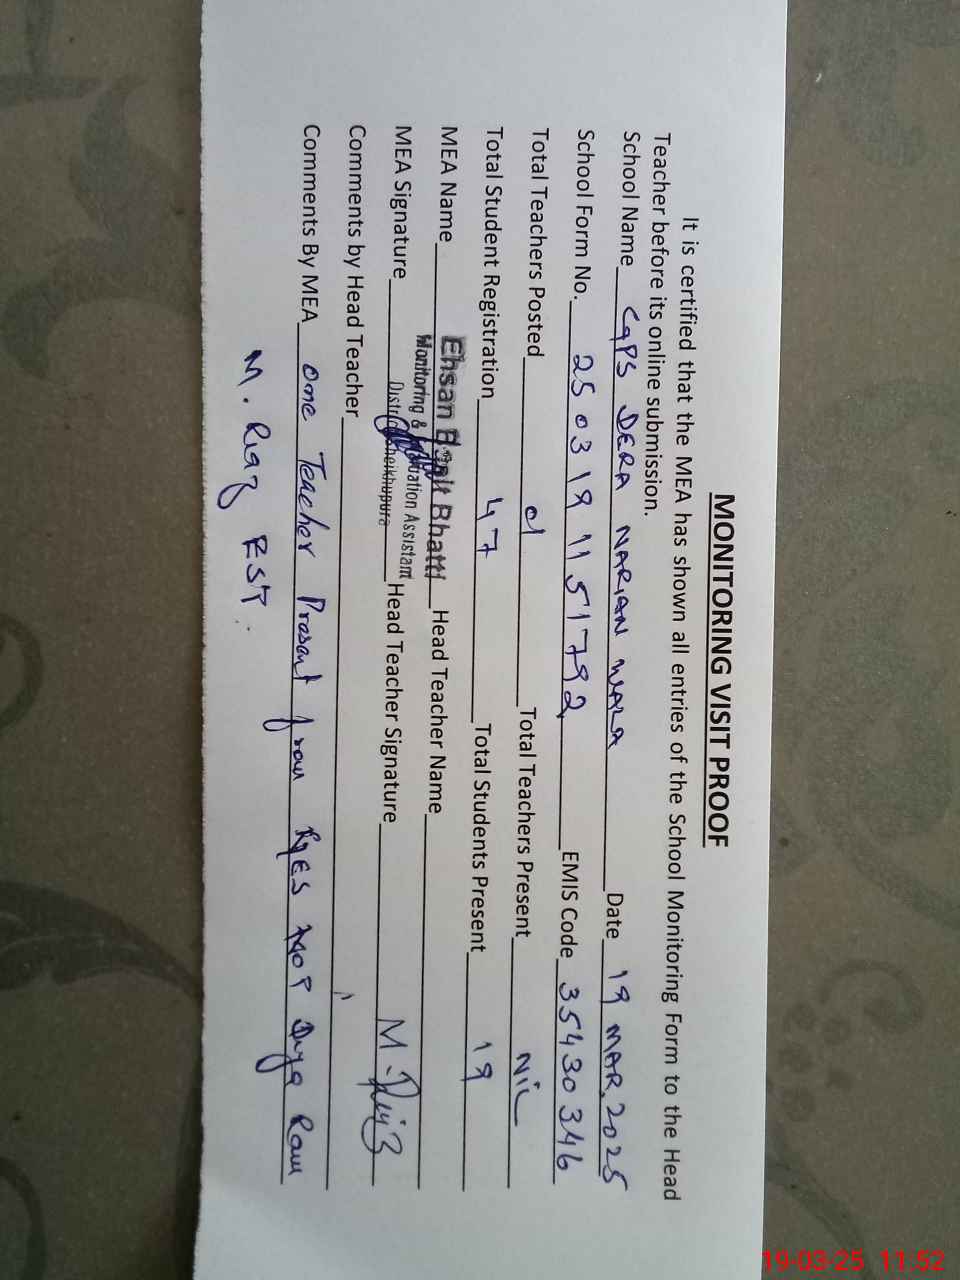 MONITORING VISIT PROOF
It is certified that the MEA has shown all entries of the School Monitoring Form to the Head
Teacher before its online submission.
School Name GPS DERA NARIAN WALA Date 19 MAR. 2025
School Form No. 25 03 19 11 51792 EMIS Code 35430346
Total Teachers Posted 01 Total Teachers Present NIL
Total Student Registration 47 Total Students Present 19
MEA Name Ehsan Bhatti Head Teacher Name
Monitoring & Evaluation Assistant
District Sheikhupura
MEA Signature Head Teacher Signature M. Riaz
Comments by Head Teacher
Comments By MEA one Teacher Present from Ram
M. Riaz EST.
19-03-25 11:52